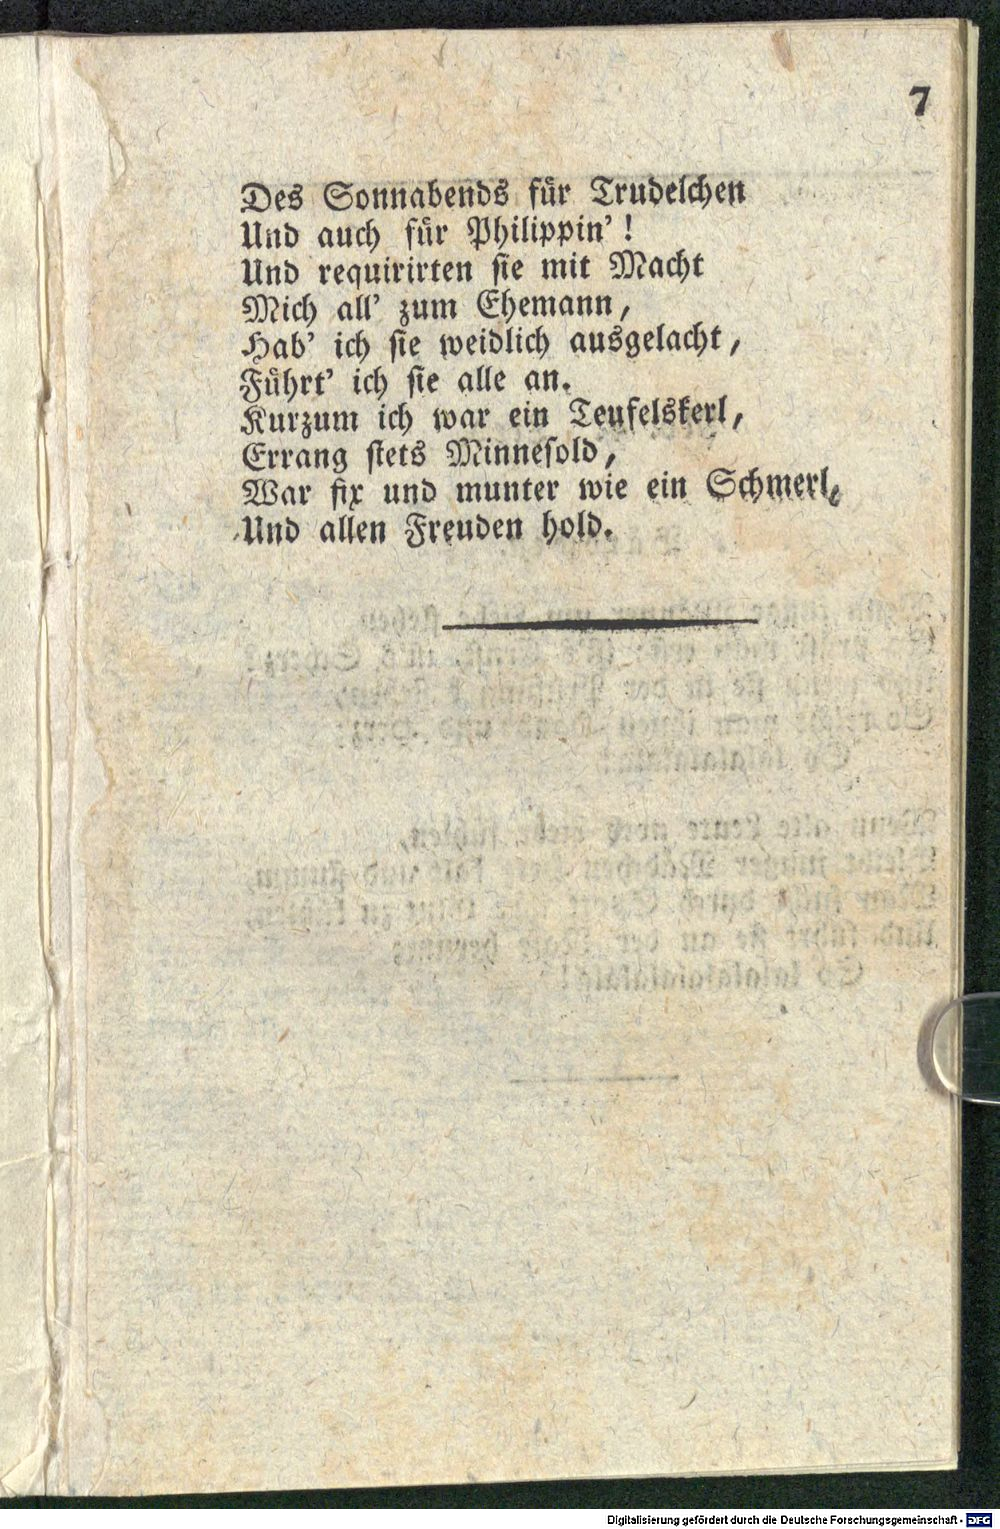 7
Des Sonnabends für Trudelchen
Und auch für Philippin' !
Und requirirten sie mit Macht
Mich all' zum Ehemann,
Hab' ich sie weidlich ausgelacht,
Führt' ich sie alle an.
Kurzum ich war ein Teufelskerl,
Errang stets Minnesold,
War fix und munter wie ein Schmerl,
Und allen Freuden hold.
Digitalisierung gefördert durch die Deutsche Forschungsgemeinschaft - DFG